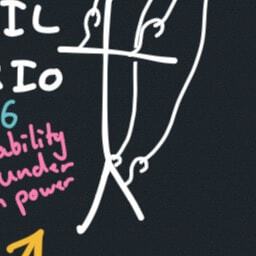 IL
IO
6
ability
under
power